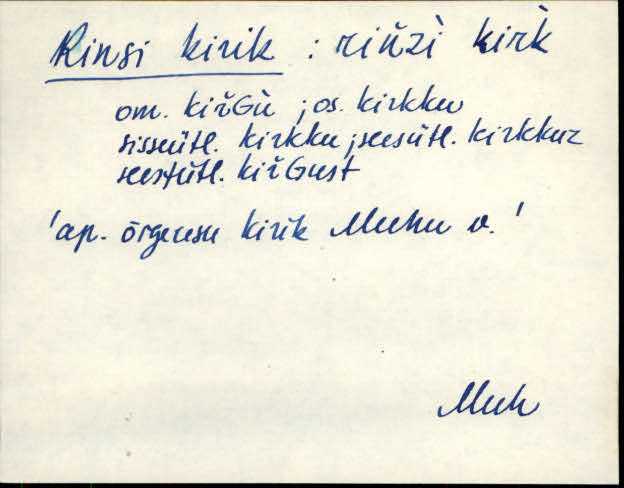 Rinsi kirik : riǹzì kir̀k
om. kir̆Gù ; os. kirkku
sisseütl. kirkku ; seesütl. kirkkuz
seestütl. kir̆Gust
'ap. õrgeusu kirik Muhu v.'
Muh